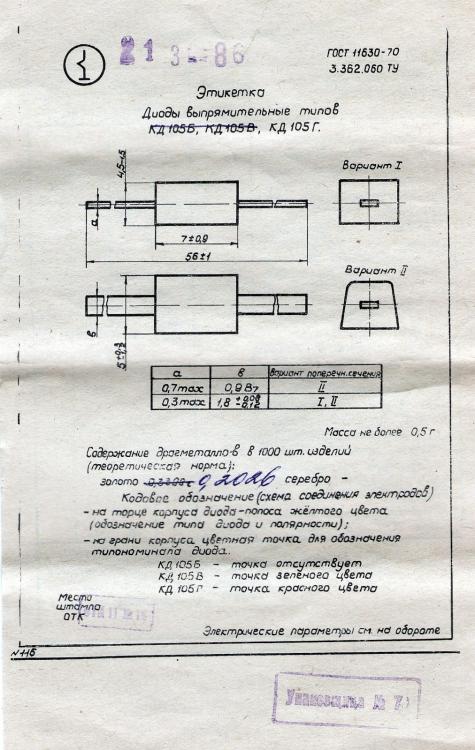 21 3 86
ГОСТ 11630-70
3.362.060 ТУ
Этикетка
Диоды выпрямительные типов
КД 105Б, КД 105В, КД 105Г.
Вариант I
4,5-1,5
а
7±0,9
56±1
Вариант II
в
5
а в Вариант поперечн. сечения
0,7max 0,9 В7 II
0,3max 1,8 I, II
Масса не более 0,5 г
Содержание драгметаллов в 1000 шт. изделий
(теоретическая норма):
золото 0,2026 серебро -
Кодовое обозначение (схема соединения электродов)
- на торце корпуса диода-полоса жёлтого цвета
(обозначение типа диода и полярности);
- на грани корпуса цветная точка для обозначения
типономинала диода.
КД 105Б - точка отсутствует
КД 105В - точка зелёного цвета
КД 105Г - точка красного цвета
Место
штампа
ОТК
Электрические параметры см. на обороте
N116
Упаковщица № 7